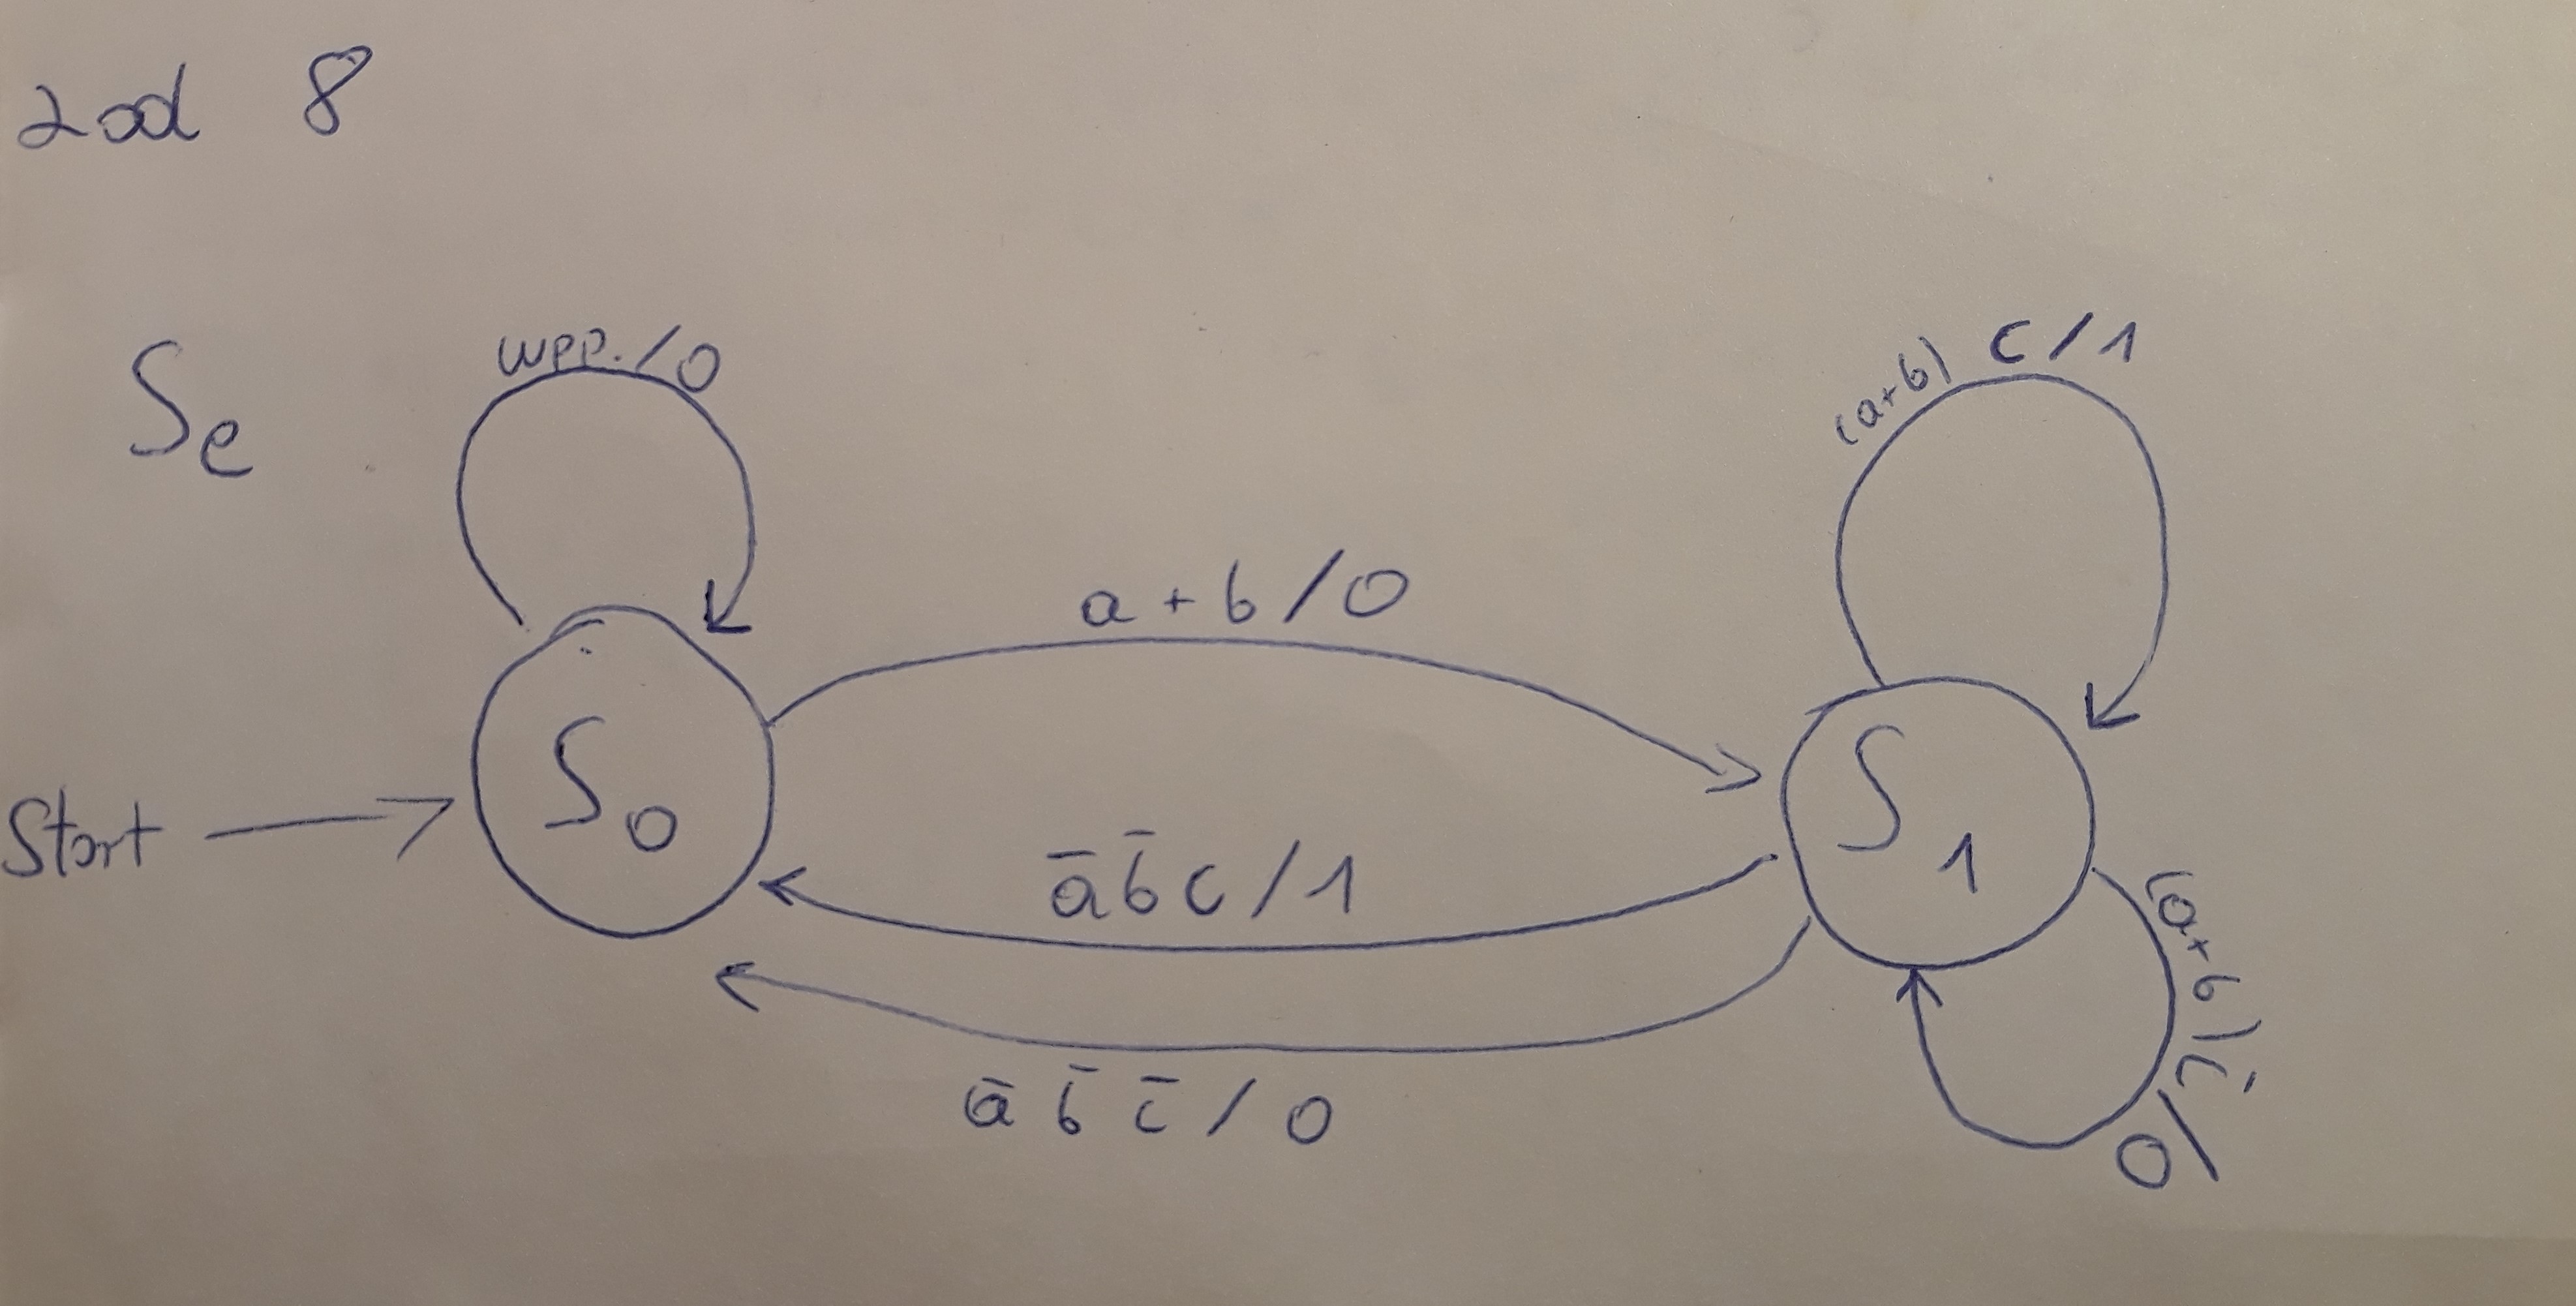 zad 8
Se
wpp./0
(a+b) c/1
a+b/0
Start
S0
S1
āb̄c/1
(a+b)c̄/0
āb̄c̄/0